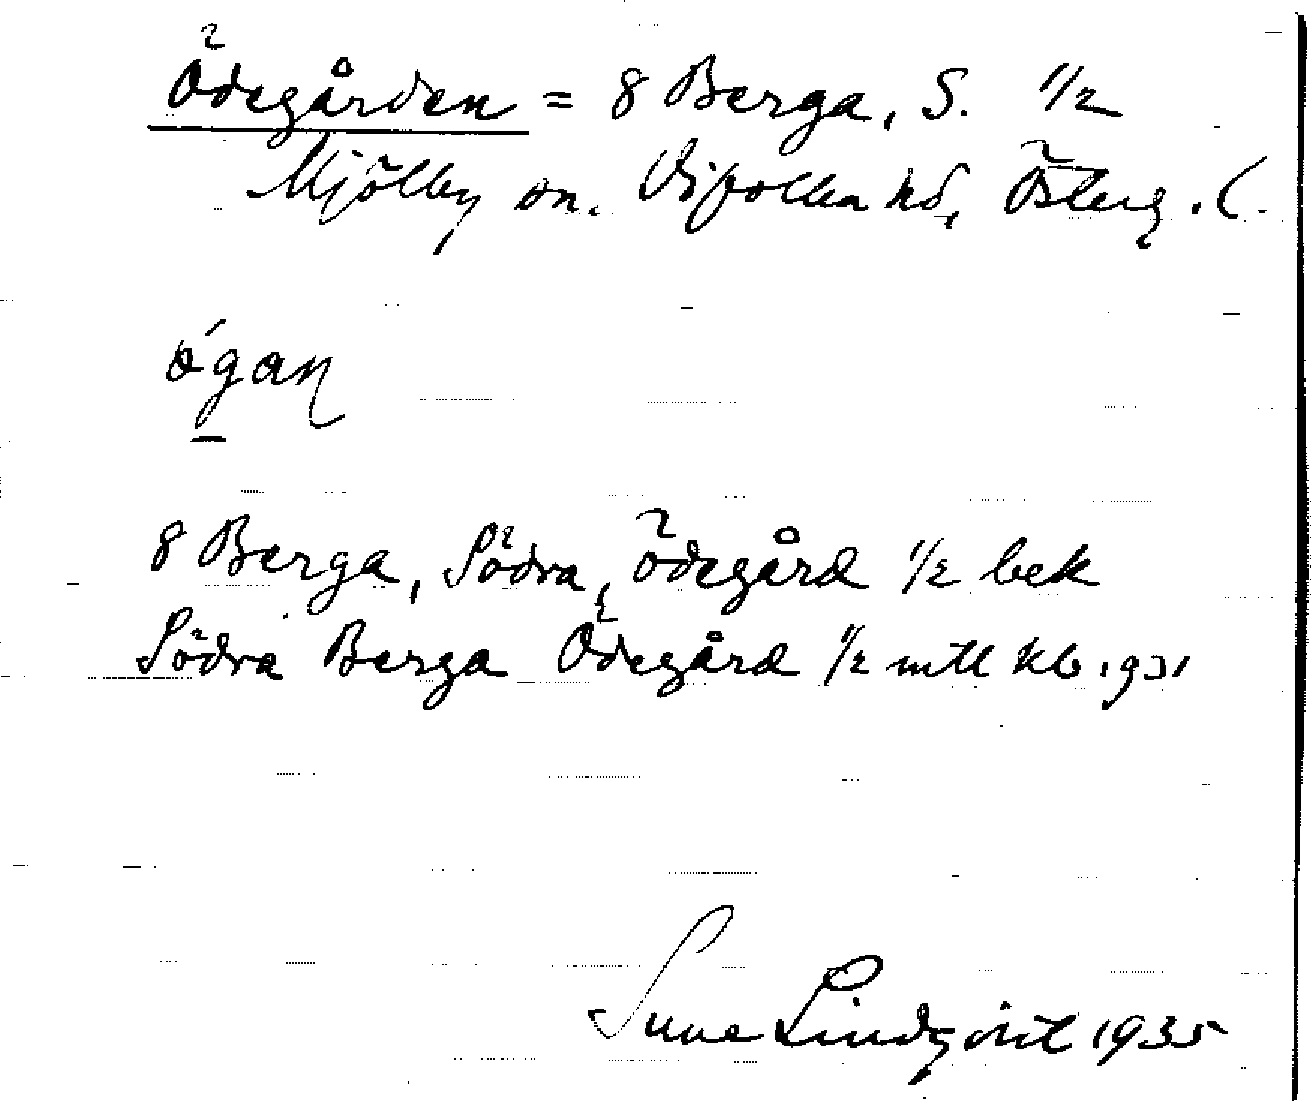 Ödegården = 8 Berga, S. 1/2
Mjölby sn. Vifolka hd, Österg. l.
ógan
8 Berga, Södra, Ödegård 1/2 bek
Södra Berga Ödegård 1/2 mtl Kb. 1931
Sune Lindqvist 1935